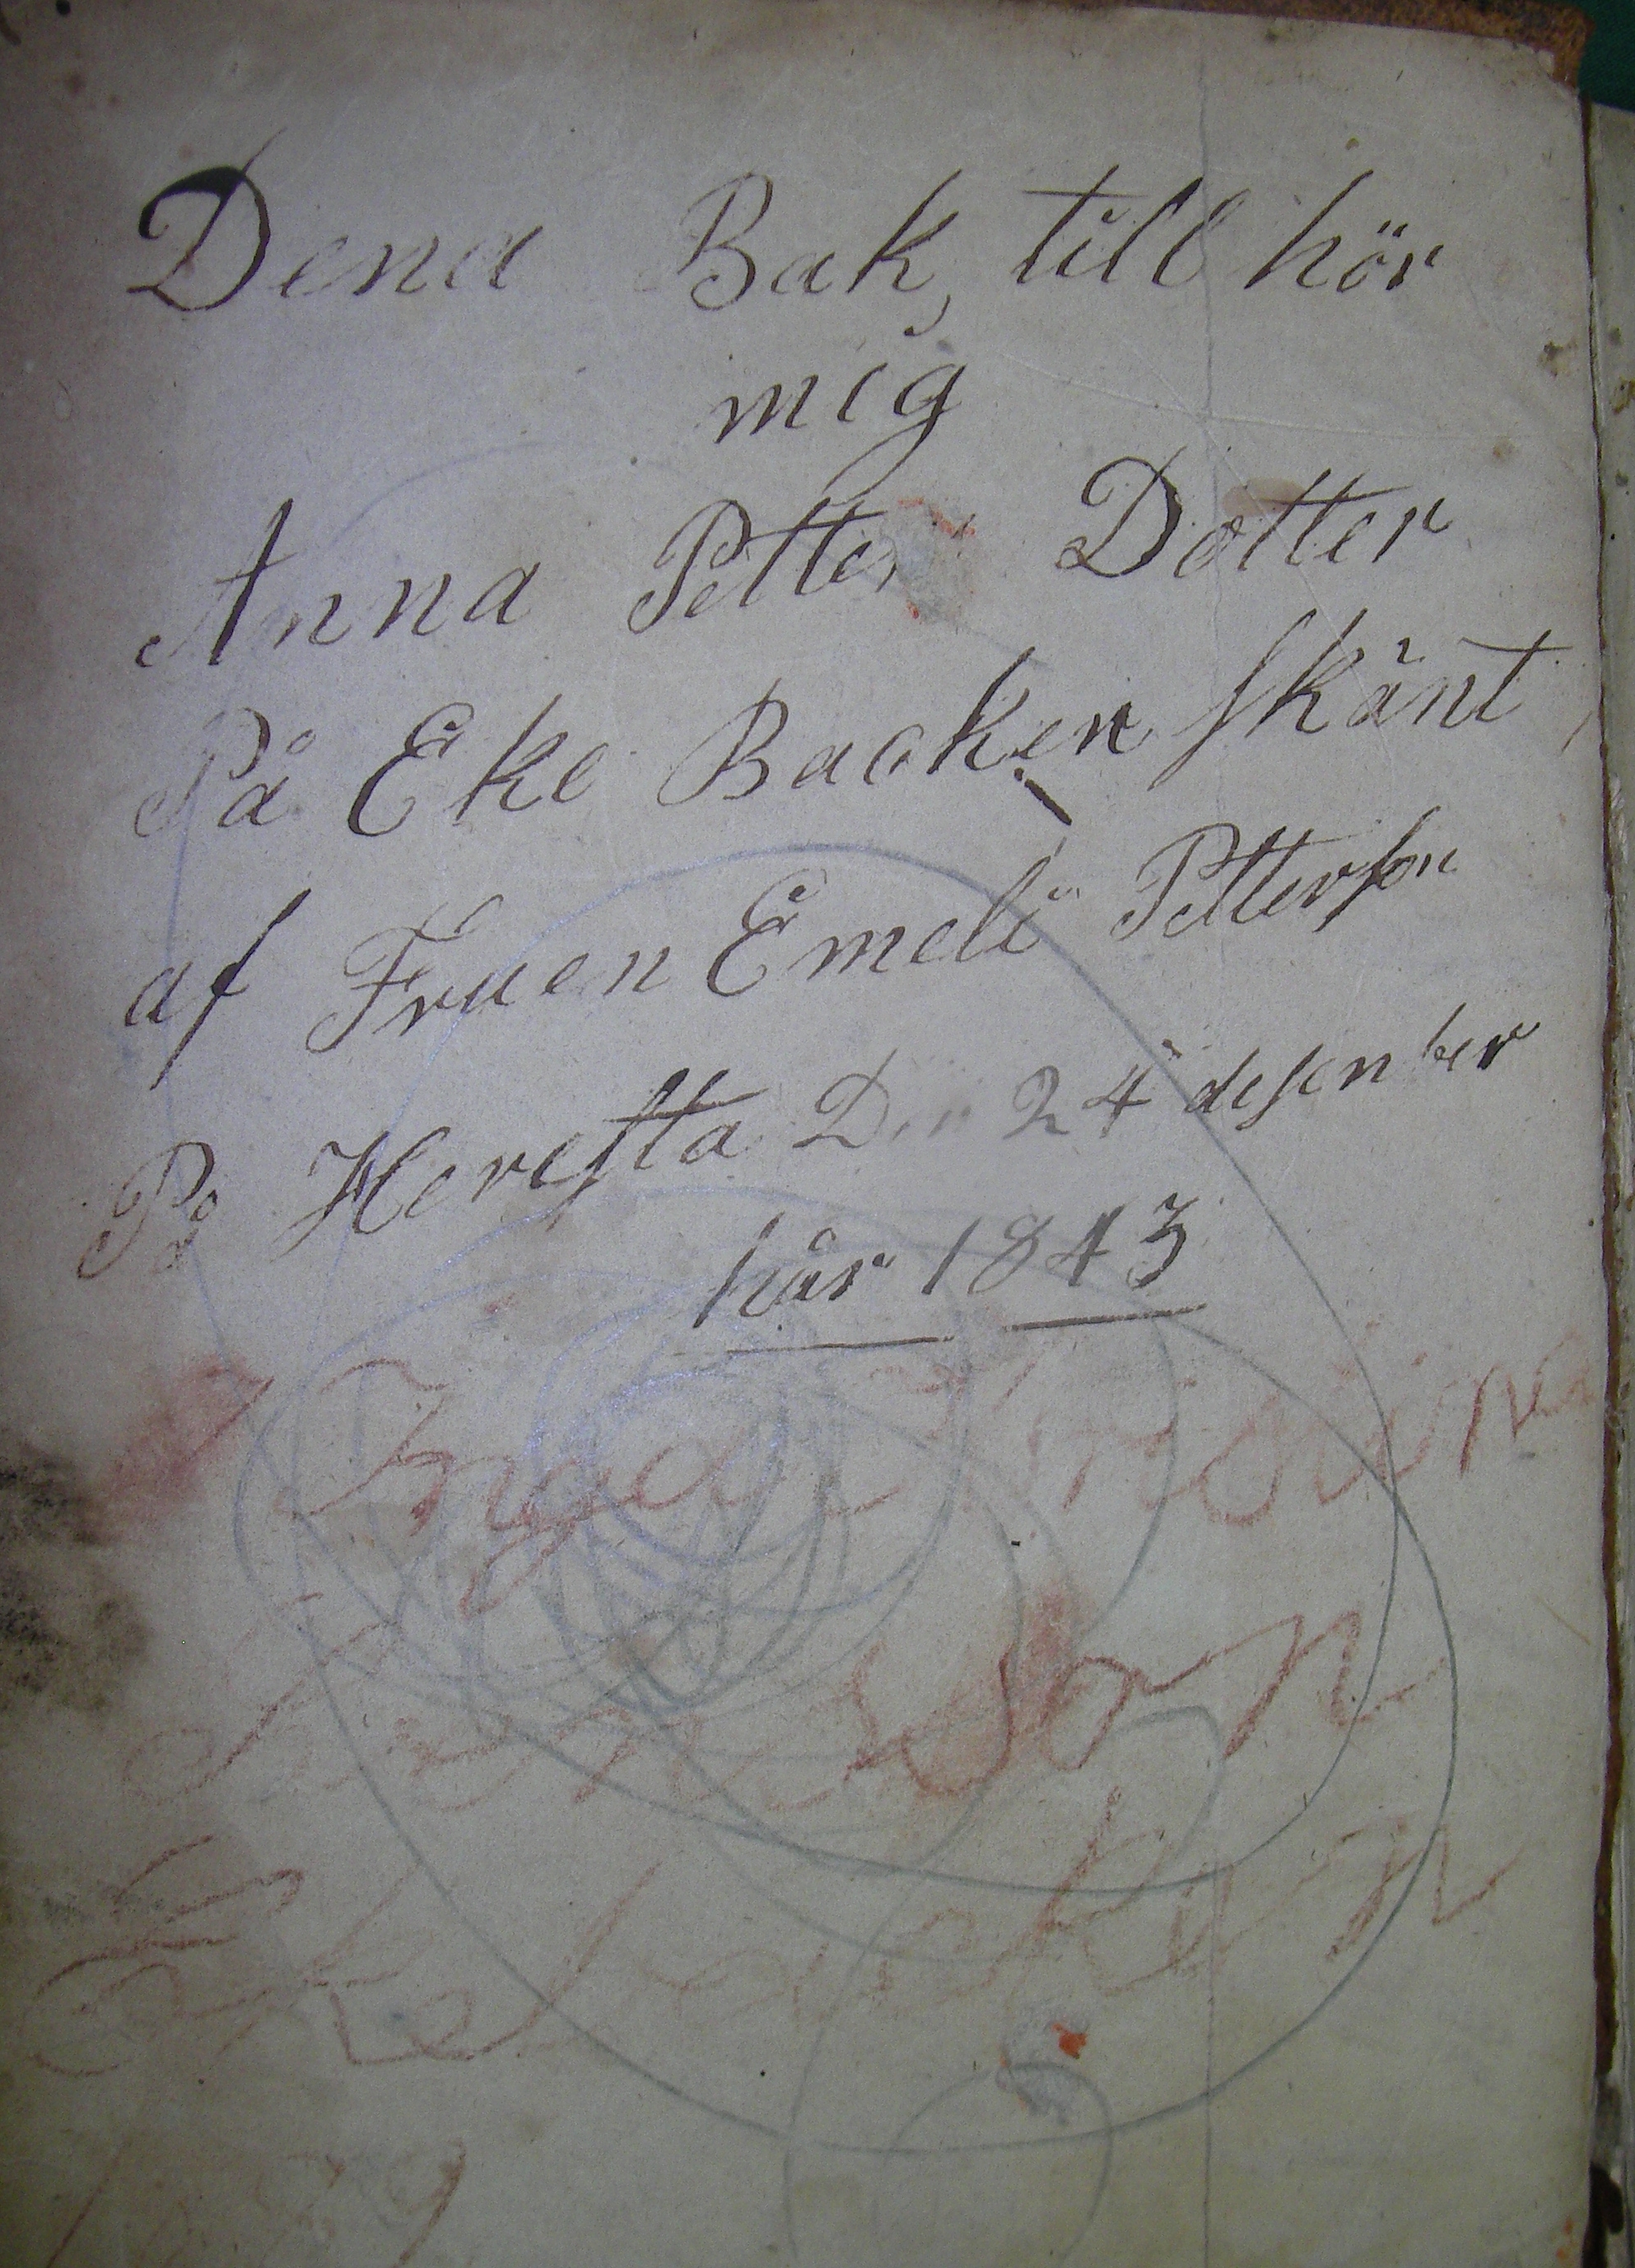 Dena Bok till hör
mig
Anna Petter Dotter
På Eke Backen skänt
af Fruen Emeli Petterson
På Heresta D 24 desenber
håir 1843
Inga
son
Ekbacken